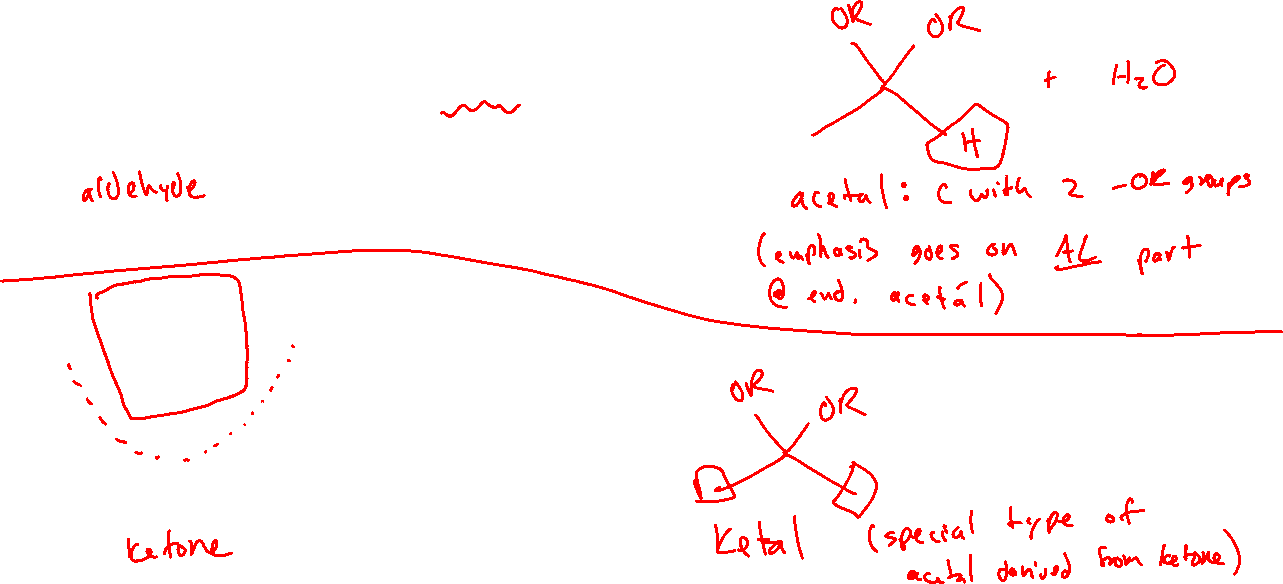 OR OR
+ H₂O
H
aldehyde
acetal: C with 2 -OR groups
(emphasis goes on AL part
@ end. acetál)
OR OR
ketal (special type of
acetal derived from ketone)
ketone